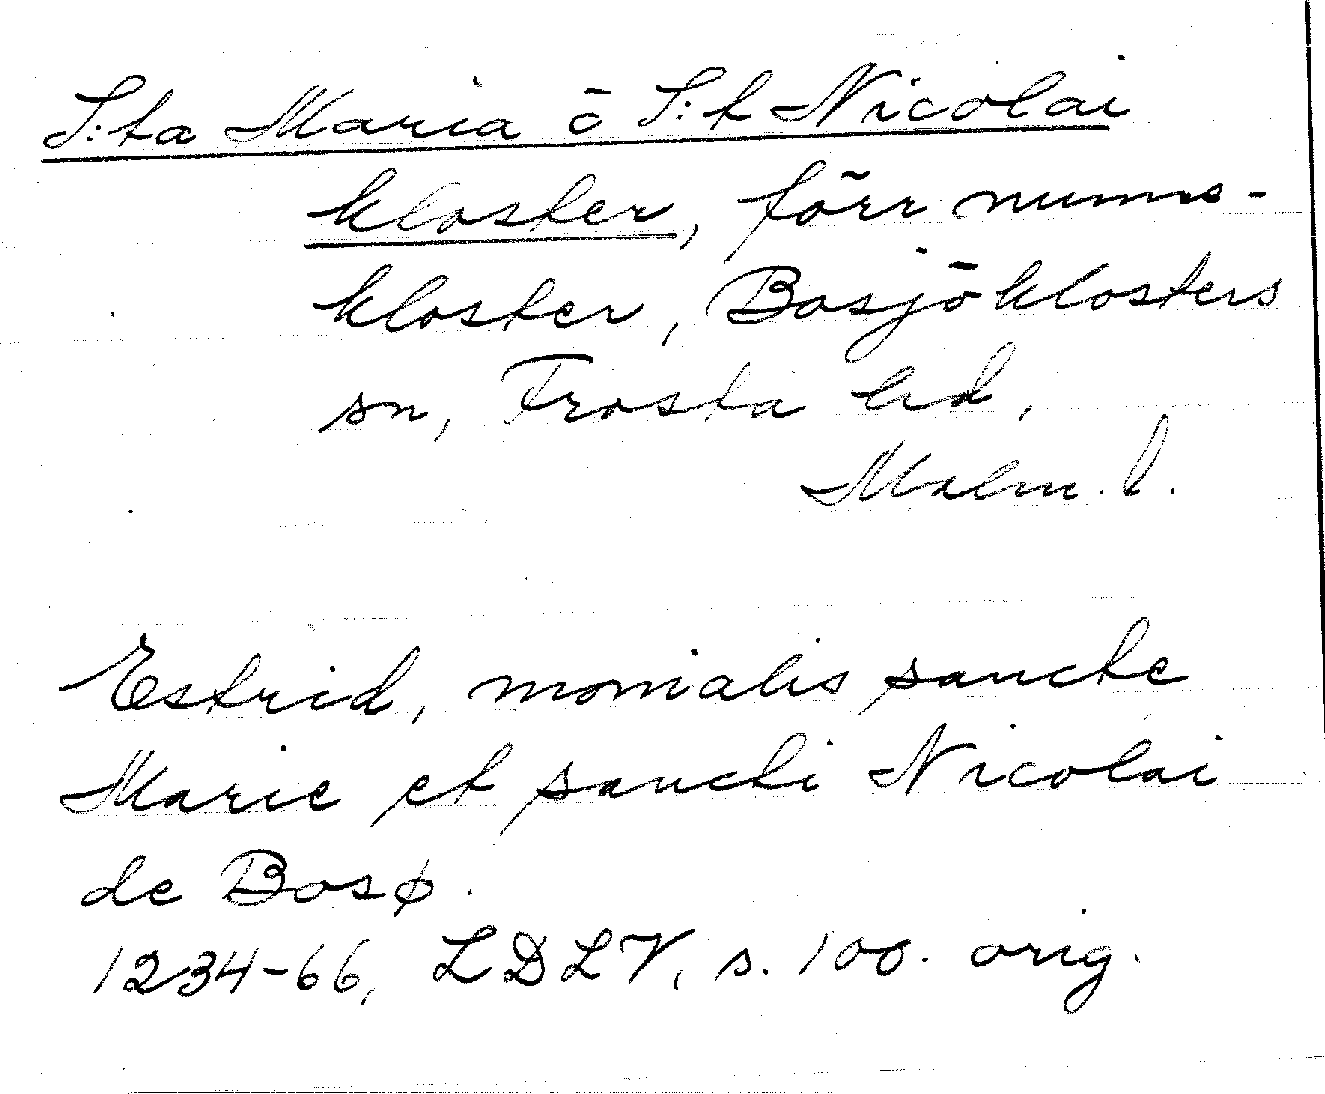 S:ta Maria o S:t Nicolai
kloster, förr nunne-
kloster, Bosjöklosters
sn, Frosta hd,
Malm. l.
Estrid, monialis sancte
Marie et sancti Nicolai
de Bosø.
1234-66, LDLV, s. 100. orig.